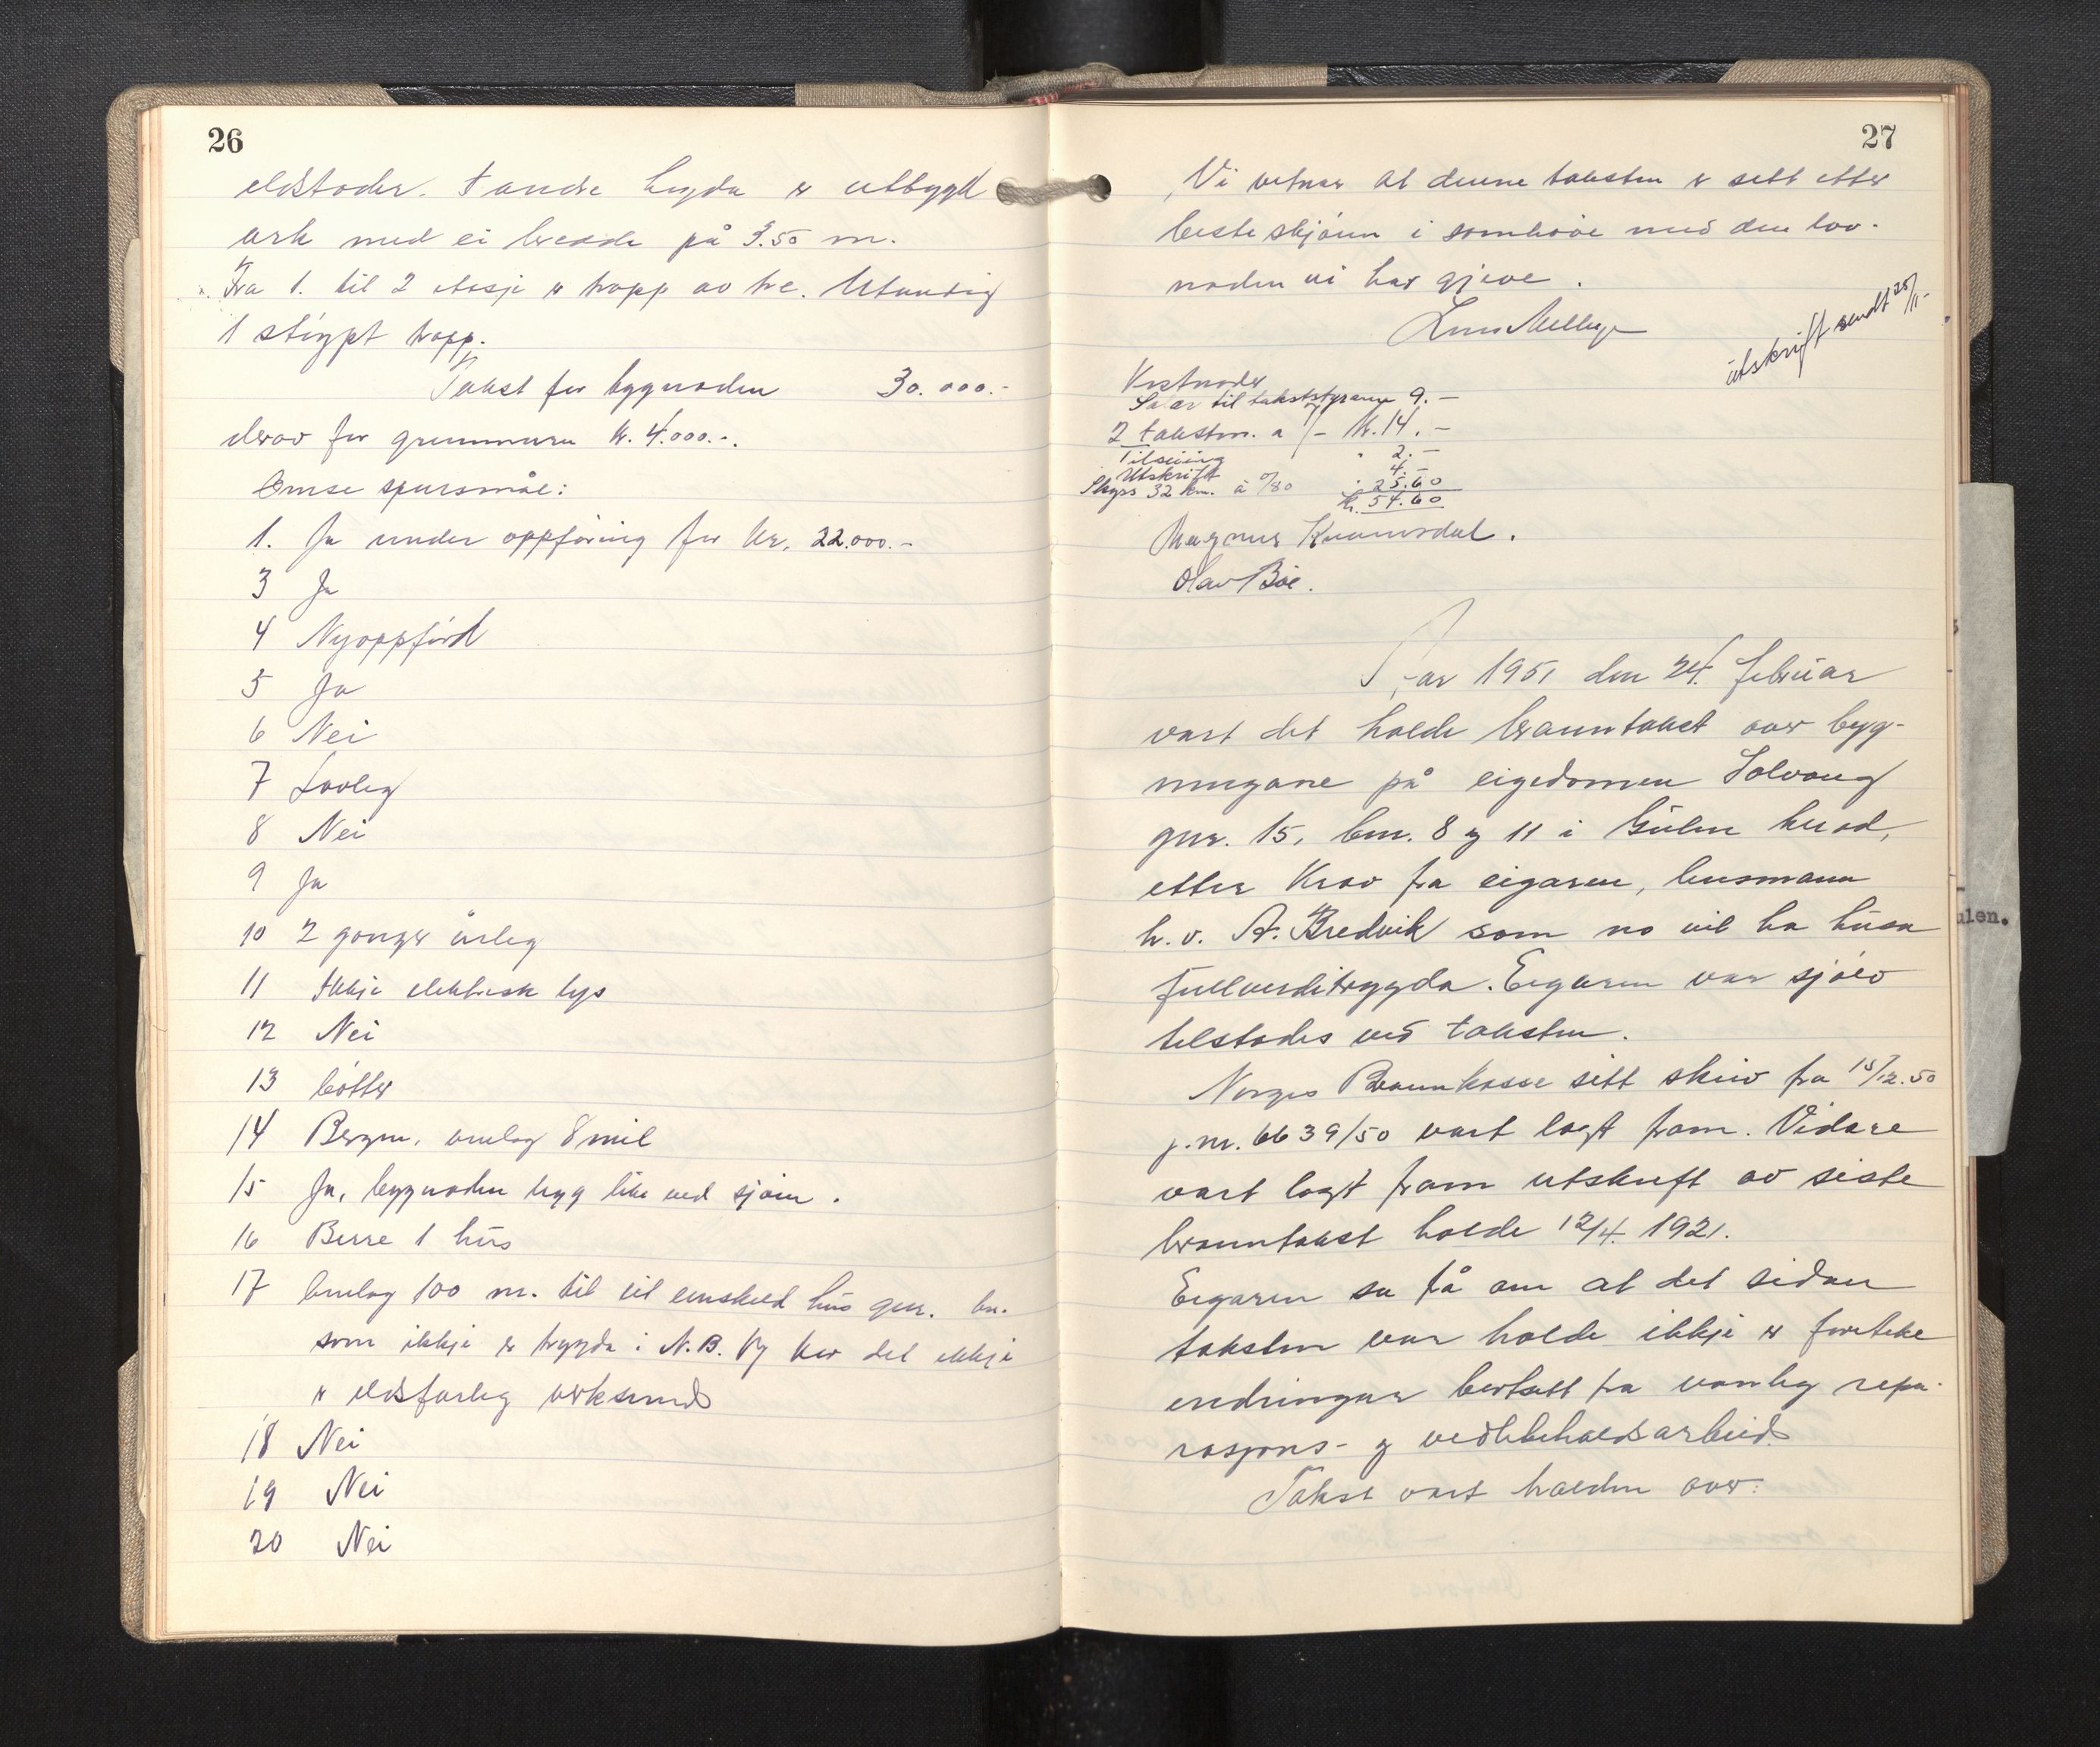 26
eldstader. I andre høgda er utbygd
ark med ei breidde på 3.50 m.
Fra 1. til 2 etasje er trapp av tre. Utvendig
1 støypt trapp.
Takst for bygnaden 30.000.-
derav for grunnmuren kr. 4.000.-.
Ymse spursmål:
1. Ja under oppføring for kr. 22.000.-
3 Ja
4 Nyoppførd
5 Ja
6 Nei
7 Lovleg
8 Nei
9 Ja
10 2 gonger årleg
11 Ikkje elektrisk lys
12 Nei
13 bøtter
14 Bergen, omlag 8 mil
15 Ja, bygnaden ligg like ved sjøen.
16 Berre 1 hus
17 Omlag 100 m. til eit einskild hus gnr. bn.
som ikkje er trygda i N.B. Og kor det ikkje
er eldsfarleg verksemd
18 Nei
19 Nei
20 Nei
27
Vi vitnar at denne taksten er sett etter
beste skjønn i samhøve med den lov-
naden vi har gjeve.
utskrift sendt 25/11-
Kostnader
Salær til takststyraren 9.-
2 takstm. a 7/- kr. 14.-
Tilseiing " 2.-
Utskrift 4.-
Skyss 32 km. à 0/80 " 25.60
kr. 54.60
Magnus Kvamsdal.
Olav Bøe.
År 1951 den 24. februar
vart det halde branntakst over byg-
ningane på eigedomen Solvang
gnr. 15, bnr. 8 og 11 i Gulen herad,
etter krav fra eigaren, lensmann
h. v. A. Bredvik som no vil ha husa
fullverditrygda. Eigaren var sjølv
tilstades ved taksten.
Norges Brannkasse sitt skriv fra 15/12.50
j.nr. 6639/50 vart lagt fram. Vidare
vart lagt fram utskrift av siste
branntakst halde 12/4. 1921.
Eigaren sa få om at det sidan
taksten var halde ikkje er foreteke
endringar bortsett fra vanleg repa-
rasjons- og vedlikehaldsarbeid.
Takst vart halden over:
ulen.